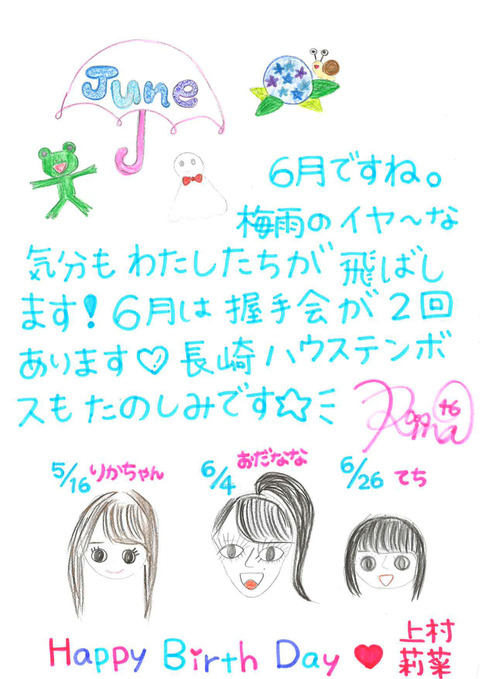 June
6月ですね。
梅雨のイヤ〜な
気分もわたしたちが飛ばし
ます!6月は握手会が2回
あります♡長崎ハウステンボ
スもたのしみです☆
5/16 りかちゃん 6/4 おだなな 6/26 てち
Happy Birth Day ♥ 上村
莉菜